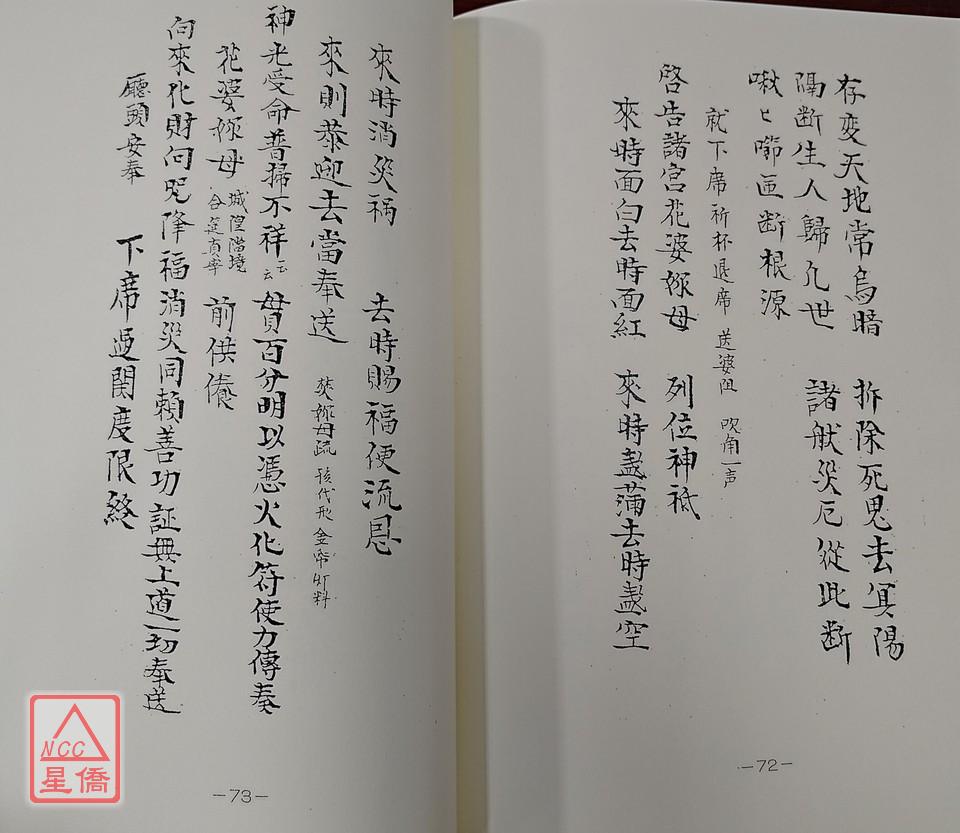 存变天地常烏暗 拆除死鬼去冥陽
隔断生人歸凡世 諸般災厄從此断
啾匕唧匝断根源
就下席祈杯退席 送婆阻 吹角一声
啓告諸宮花婆姊母 列位神祇
來時面白去時面紅 來時盞蒲去時盞空
-72-
來時消災禍 去時賜福便流恩
來則恭迎去當奉送 焚姊母疏 孩代形 金帛灯料
神光受命普掃不祥 云云 貫百分明以憑火化符使力傳奏
花婆姊母 城隍當境 合筵真宰 前供儀
向來化財向咒降福消災同賴善功証無上道一切奉送
廳頭安奉 下席過関度限終
-73-
NCC
星僑